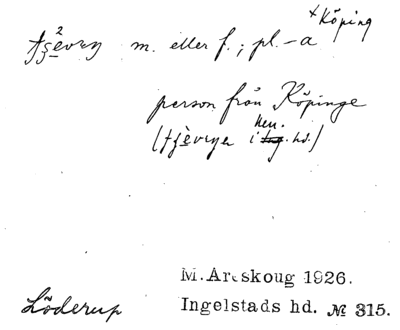 +Köping
tʂèvıŋ m. eller f.; pl. -a
person från Köpinge
(tʂèvıŋa i Herr. hd.)
M. Areskoug 1926.
Löderup Ingelstads hd. № 315.